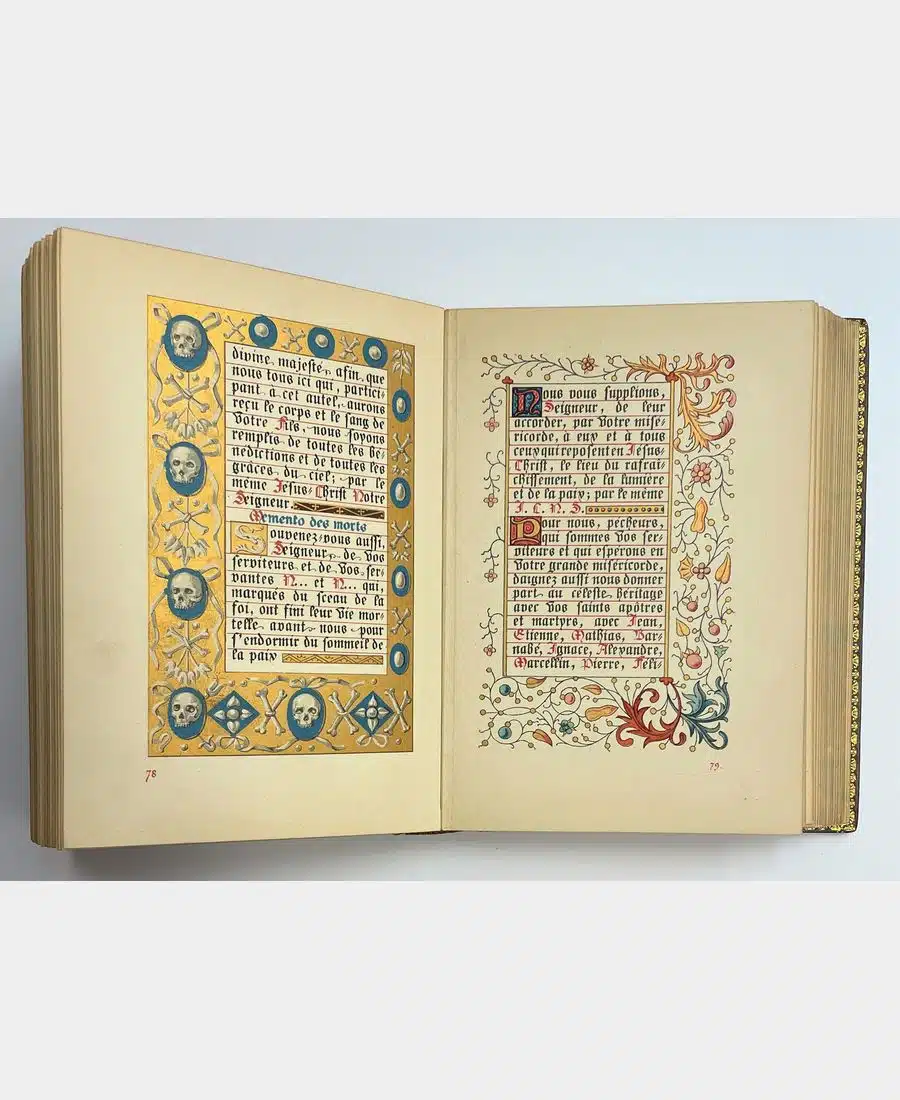 divine majesté, afin que
nous tous ici qui, partici-
pant à cet autel, aurons
reçu le corps et le sang de
Votre Fils, nous soyons
remplis de toutes les bé-
nédictions et de toutes les
grâces du ciel; par le
même Jésus-Christ Notre
Seigneur.
Memento des morts
Souvenez-vous aussi,
Seigneur, de vos
serviteurs et de vos ser-
vantes N... et N... qui,
marqués du sceau de la
foi, ont fini leur vie mor-
telle avant nous pour
s'endormir du sommeil de
la paix
78
Nous vous supplions,
Seigneur, de leur
accorder, par Votre misé-
ricorde, à eux et à tous
ceux qui reposent en Jésus-
Christ, le lieu du rafraî-
chissement, de la lumière
et de la paix; par le même
J. C. N. S.
Pour nous, pécheurs,
qui sommes Vos ser-
viteurs et qui espérons en
Votre grande miséricorde,
daignez aussi nous donner
part au céleste héritage
avec Vos saints apôtres
et martyrs, avec Jean,
Etienne, Mathias, Bar-
nabé, Ignace, Alexandre,
Marcellin, Pierre, Féli-
79.